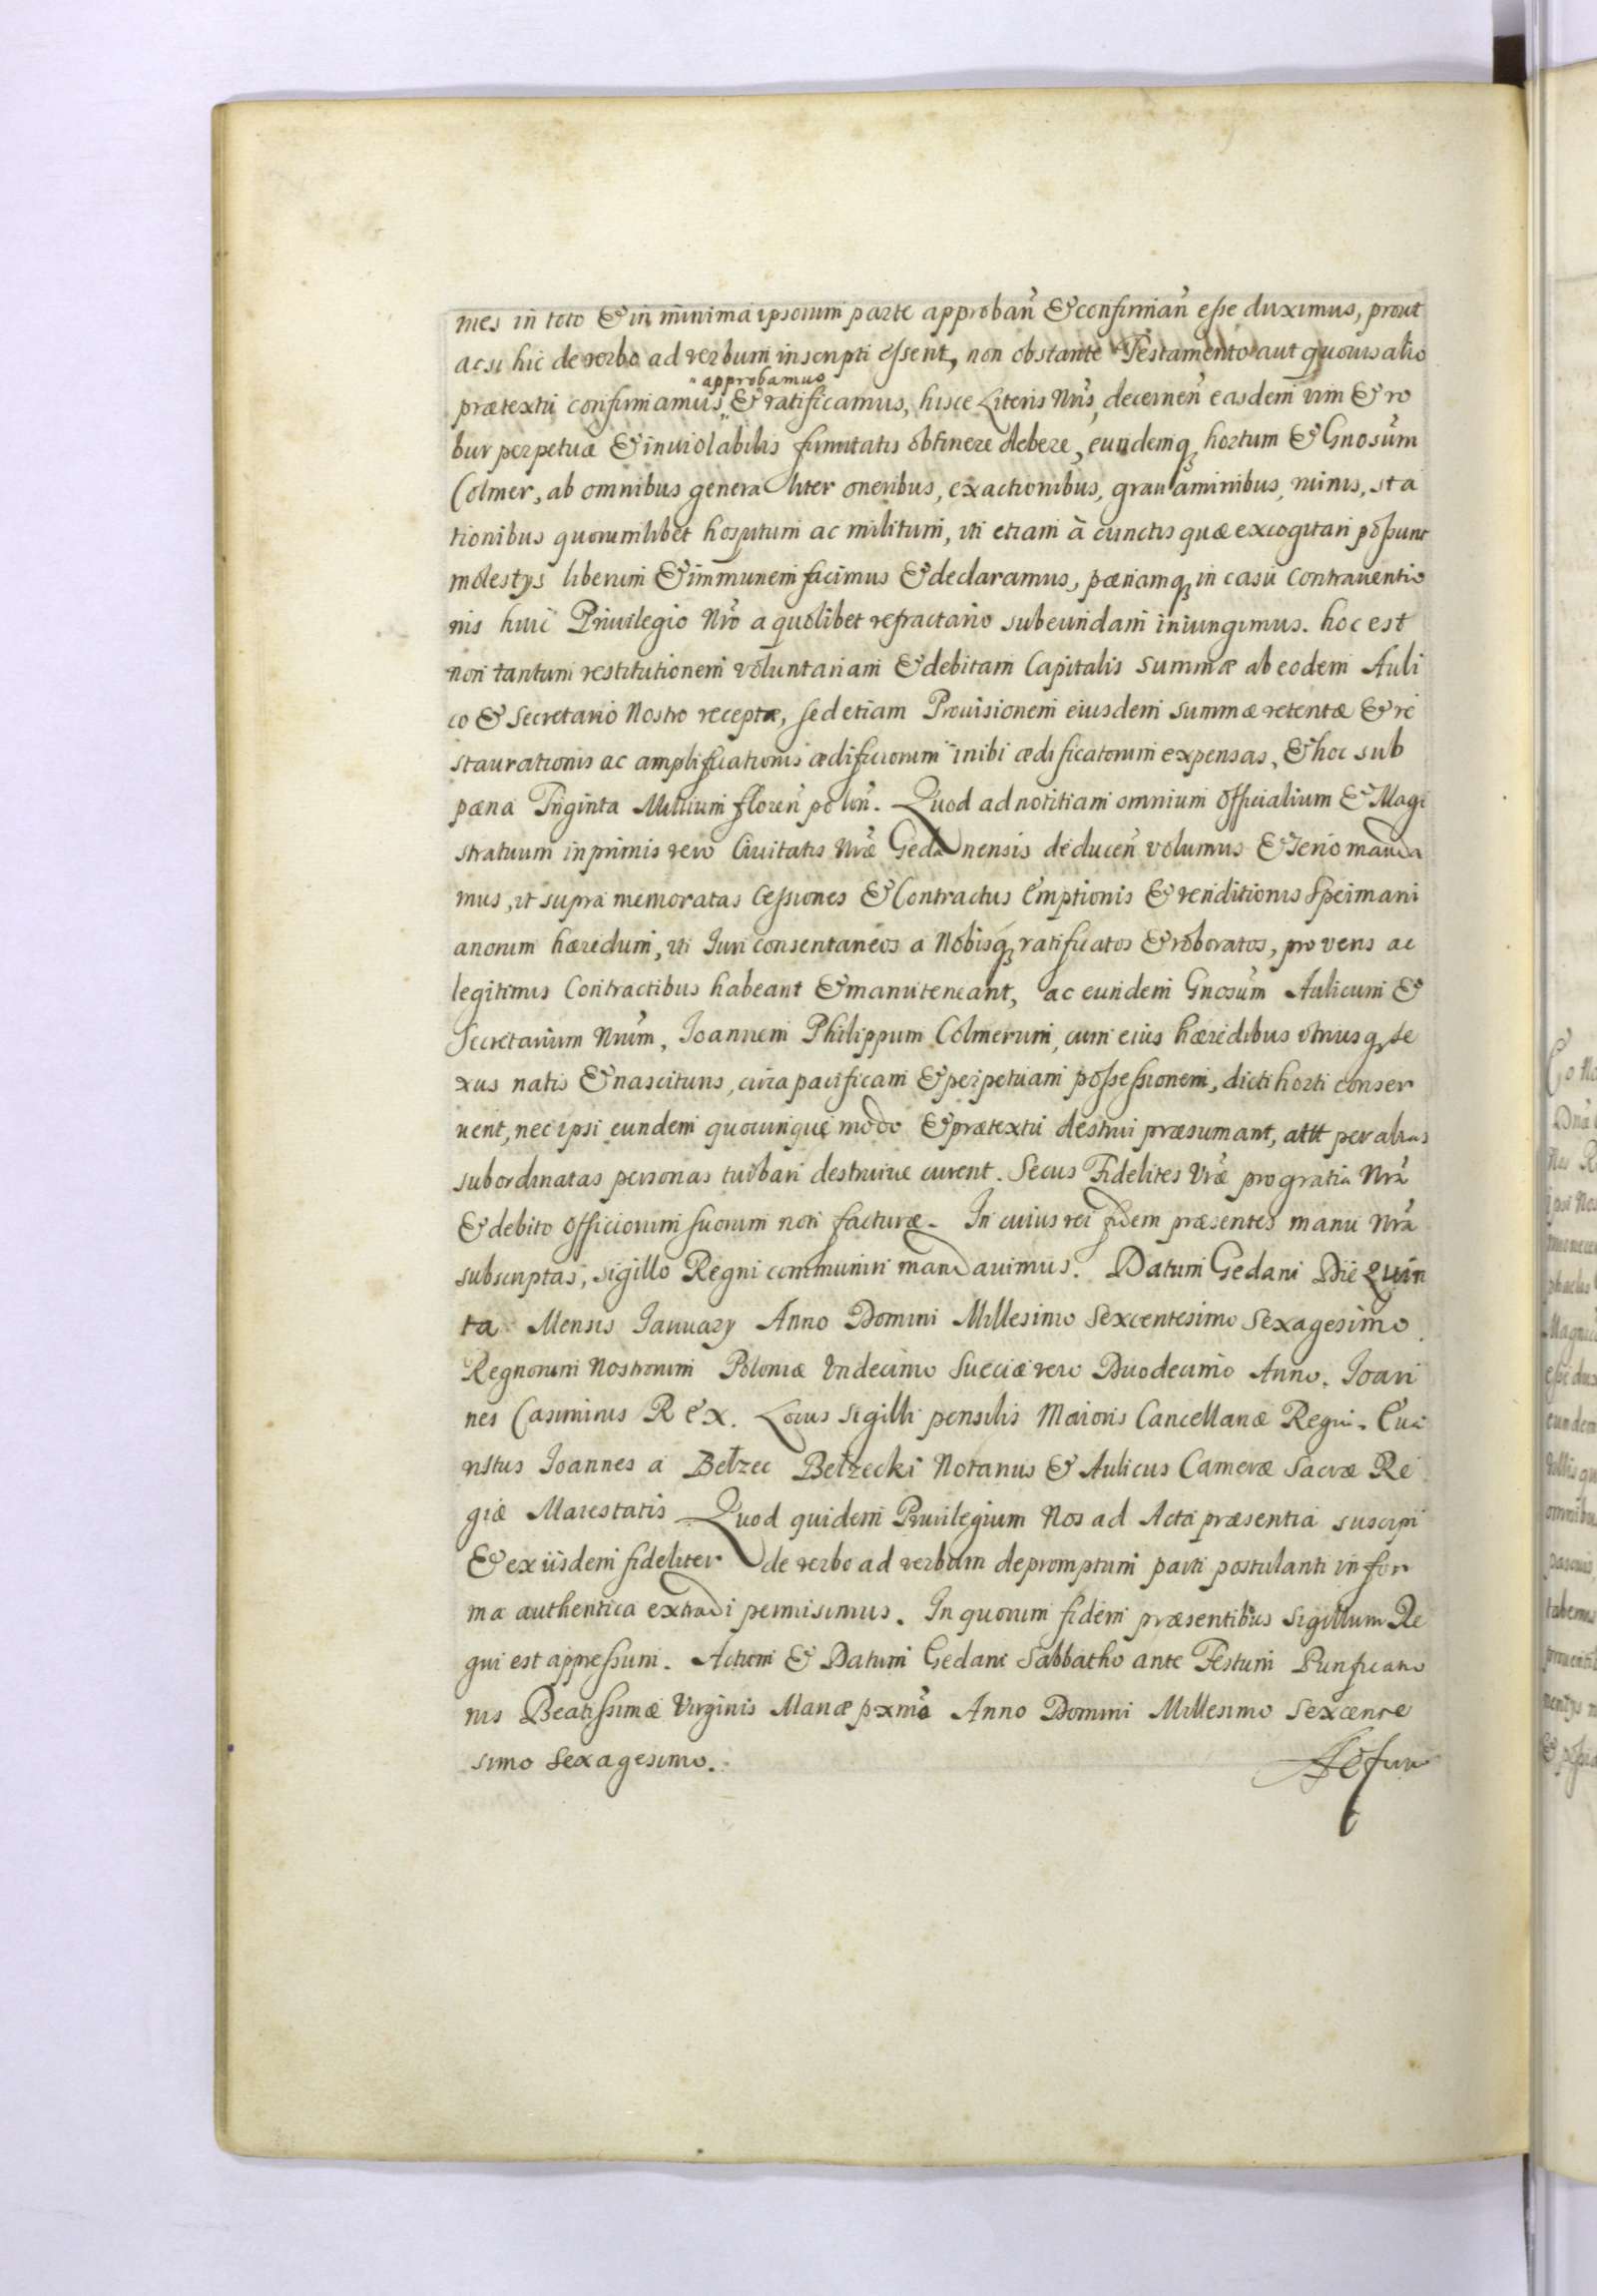 nes in toto & in minima ipsorum parte approban̄ & confirman̄ esse duximus, prout
ac si hic de verbo ad verbum inscripti essent, non obstante Testamento aut quovis alio
approbamus
prætextu confirmamus, & ratificamus, hisce Literis Nr̄is, decernen̄ easdem vim & ro
bur perpetuæ & inviolabilis firmitatis obtinere debere, eundemq; hortum & Gnosum̄
Colmer, ab omnibus generaliter oneribus, exactionibus, gravaminibus, ruinis, sta
tionibus quorumlibet hospitum ac militum, uti etiam à cunctis quæ excogitari possunt
molestys liberum & immunem facimus & declaramus, pænamq; in casu contraventio
nis huic Privilegio Nr̄o a quolibet refractario subeundam iniungimus. hoc est
non tantum restitutionem voluntariam & debitam Capitalis summæ ab eodem Auli
co & Secretario Nostro receptæ, sed etiam Provisionem eiusdem summæ retentæ & re
staurationis ac amplificationis ædificiorum inibi ædificatorum expensas, & hoc sub
pæna Triginta Millium floren̄ polon̄. Quod ad notitiam omnium Officialium & Magi
stratuum inprimis vero Civitatis Nr̄æ Gedanensis deducen̄ volumus & serio manda
mus, ut supra memoratas Cessiones & Contractus Emptionis & venditionis Speimani
anorum hæredum, uti Iuri consentaneos a Nobisq; ratificatos & roboratos, pro veris ac
legitimis Contractibus habeant & manuteneant, ac eundem Gnosum̄ Aulicum &
Secretarium Nr̄um, Joannem Philippum Colmerum, cum eius hæredibus utriusq; se
xus natis & nascituris, circa pacificam & perpetuam possessionem, dicti horti conser
vent, nec ipsi eundem quocunque modo & prætextu destrui præsumant, aut per alias
subordinatas personas turbari destruive curent. Secus Fidelites Vr̄æ pro gratia Nr̄a
& debito Officiorum suorum non facturæ. In cuius rei fidem præsentes manu Nr̄a
subscriptas, sigillo Regni communiri mandavimus. Datum Gedani Die Quin
ta Mensis January Anno Domini Millesimo Sexcentesimo Sexagesimo.
Regnorum Nostrorum Poloniæ Undecimo Sueciæ vero Duodecimo Anno. Joan
nes Casimirus Rex. Locus Sigilli pensilis Maioris Cancellariæ Regni. Eva
ristus Joannes a Bełzec Bełzecki Notarius & Aulicus Cameræ Sacræ Re
giæ Maiestatis Quod quidem Privilegium Nos ad Acta præsentia suscipi
& ex iisdem fideliter de verbo ad verbum depromptum parti postulanti in for
ma authentica extradi permisimus. In quorum fidem præsentibus Sigillum Re
gni est appressum. Actum & Datum Gedani Sabbatho ante Festum Purificatio
nis Beatissimæ Virginis Mariæ pxmo Anno Domini Millesimo Sexcente
simo Sexagesimo.